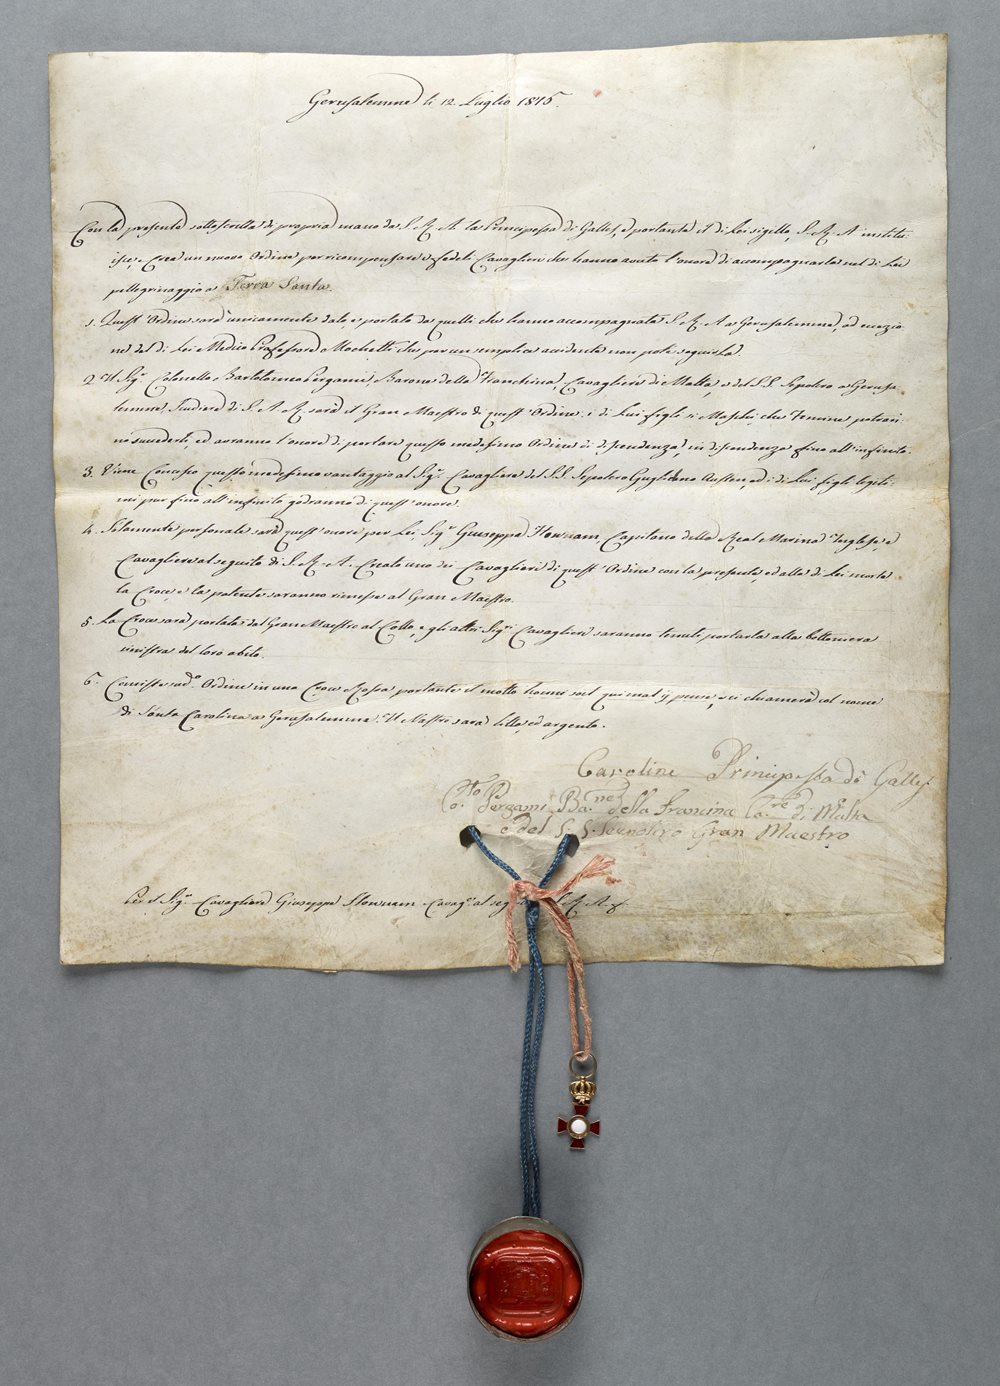 Gerusalemme li 12. Luglio 1816.
Con la presente sottoscritta di propria mano da S. A. R. la Principessa di Galles, e portante il di Lei sigillo, S. A. R. institu-
isce, e Crea un nuovo Ordine per ricompensare i fedeli Cavaglieri che hanno avuto l'onore di accompagnarla nel di Lei
pellegrinaggio a Terra Santa.
1. Quest' Ordine sarà unicamente dato, e portato da quelli che hanno accompagnata S. A. R. a Gerusalemme, ad eccezio-
ne del di Lei Medico Professore Mochetti che per un semplice accidente non potè seguirla.
2. Il Sigr. Colonello Bartolomeo Pergami, Barone della Franchina, Cavagliere di Malta, e del S. S. Sepolcro a Gerusa-
lemme, Scudiere di S. A. R. sarà il Gran Maestro di quest' Ordine; i di Lui figli sì Maschi, che Femine potran-
no succederli, ed avranno l'onore di portare questo medesimo Ordine di dipendenza, in dipendenza fino all' infinito.
3. Viene Concesso questo medesimo vantaggio al Sigr. Cavagliere del S. S. Sepolcro Guglielmo Austen ed i di Lui figli legiti-
mi pur fino all' infinito godranno di quest' onore.
4. Solamente personale sarà quest' onore per Lei, Sigr. Giuseppe Hownam, Capitano della Real Marina Inglese, e
Cavagliere al seguito di S. A. R. Creato uno dei Cavaglieri di quest' Ordine con la presente, ed alla di Lei morte
la Croce, e la patente saranno rimesse al Gran Maestro.
5. La Croce sarà portata dal Gran Maestro al Collo, e gli altri Sigri. Cavaglieri saranno tenuti portarla alla bottoniera
sinistra del loro abito.
6. Consiste sudo. Ordine in una Croce Rossa portante il motto honni soit qui mal y pense, e si chiamerà col nome
di Santa Carolina a Gerusalemme. Il Nastro sarà lilla, ed argento.
Caroline Principessa di Galles.
Co.llo Pergami Ba.ne della Francina Ca.re di Malta
e del S. S. Gran Maestro
Per il Sigr. Cavagliere Giuseppe Hownam Cavage. al S. A. R.